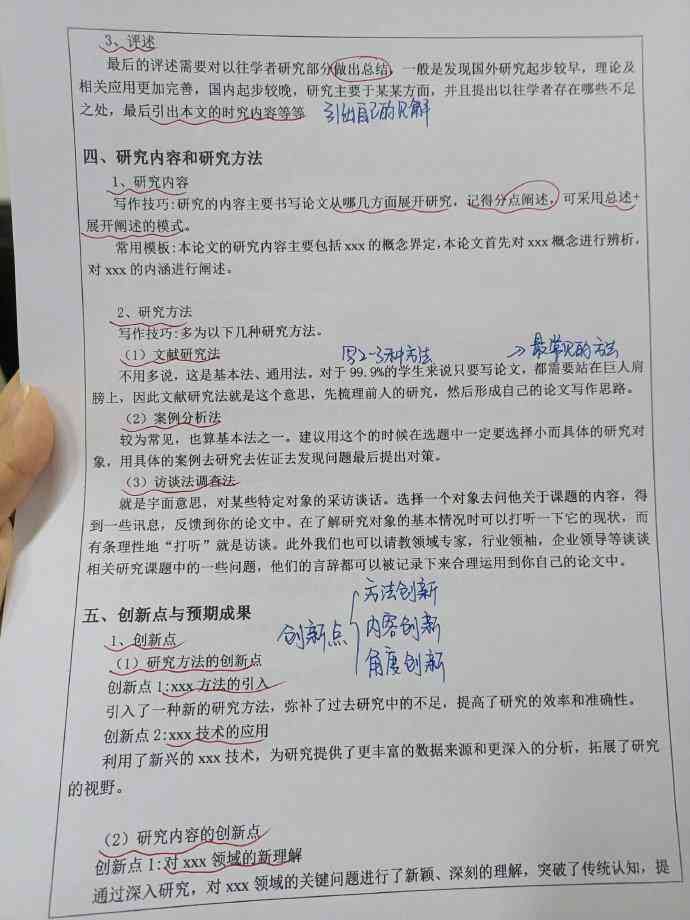 3、评述
最后的评述需要对以往学者研究部分做出总结，一般是发现国外研究起步较早，理论及
相关应用更加完善，国内起步较晚，研究主要于某某方面，并且提出以往学者存在哪些不足
之处，最后引出本文的时究内容等等 引出自己的见解
四、研究内容和研究方法
1、研究内容
写作技巧:研究的内容主要书写论文从哪几方面展开研究，记得分点阐述，可采用总述+
展开阐述的模式。
常用模板:本论文的研究内容主要包括 xxx 的概念界定,本论文首先对 xxx 概念进行辨析，
对 xxx 的内涵进行阐述。
2、研究方法
写作技巧:多为以下几种研究方法。
（1）文献研究法 写2-3种方法 → 最常见的方法
不用多说，这是基本法、通用法。对于 99.9%的学生来说只要写论文，都需要站在巨人肩
膀上，因此文献研究法就是这个意思，先梳理前人的研究，然后形成自己的论文写作思路。
（2）案例分析法
较为常见，也算基本法之一。建议用这个的时候在选题中一定要选择小而具体的研究对
象，用具体的案例去研究去佐证去发现问题最后提出对策。
（3）访谈法调查法
就是字面意思，对某些特定对象的采访谈话。选择一个对象去问他关于课题的内容，得
到一些讯息，反馈到你的论文中。在了解研究对象的基本情况时可以打听一下它的现状，而
有条理性地“打听”就是访谈。此外我们也可以请教领域专家，行业领袖，企业领导等谈谈
相关研究课题中的一些问题，他们的言辞都可以被记录下来合理运用到你自己的论文中。
五、创新点与预期成果
方法创新
创新点 内容创新
角度创新
1、创新点
（1）研究方法的创新点
创新点 1:xxx 方法的引入
引入了一种新的研究方法，弥补了过去研究中的不足，提高了研究的效率和准确性。
创新点 2:xxx 技术的应用
利用了新兴的 xxx 技术，为研究提供了更丰富的数据来源和更深入的分析，拓展了研究
的视野。
（2）研究内容的创新点
创新点 1:对 xxx 领域的新理解
通过深入研究，对 xxx 领域的关键问题进行了新颖、深刻的理解，突破了传统认知，提